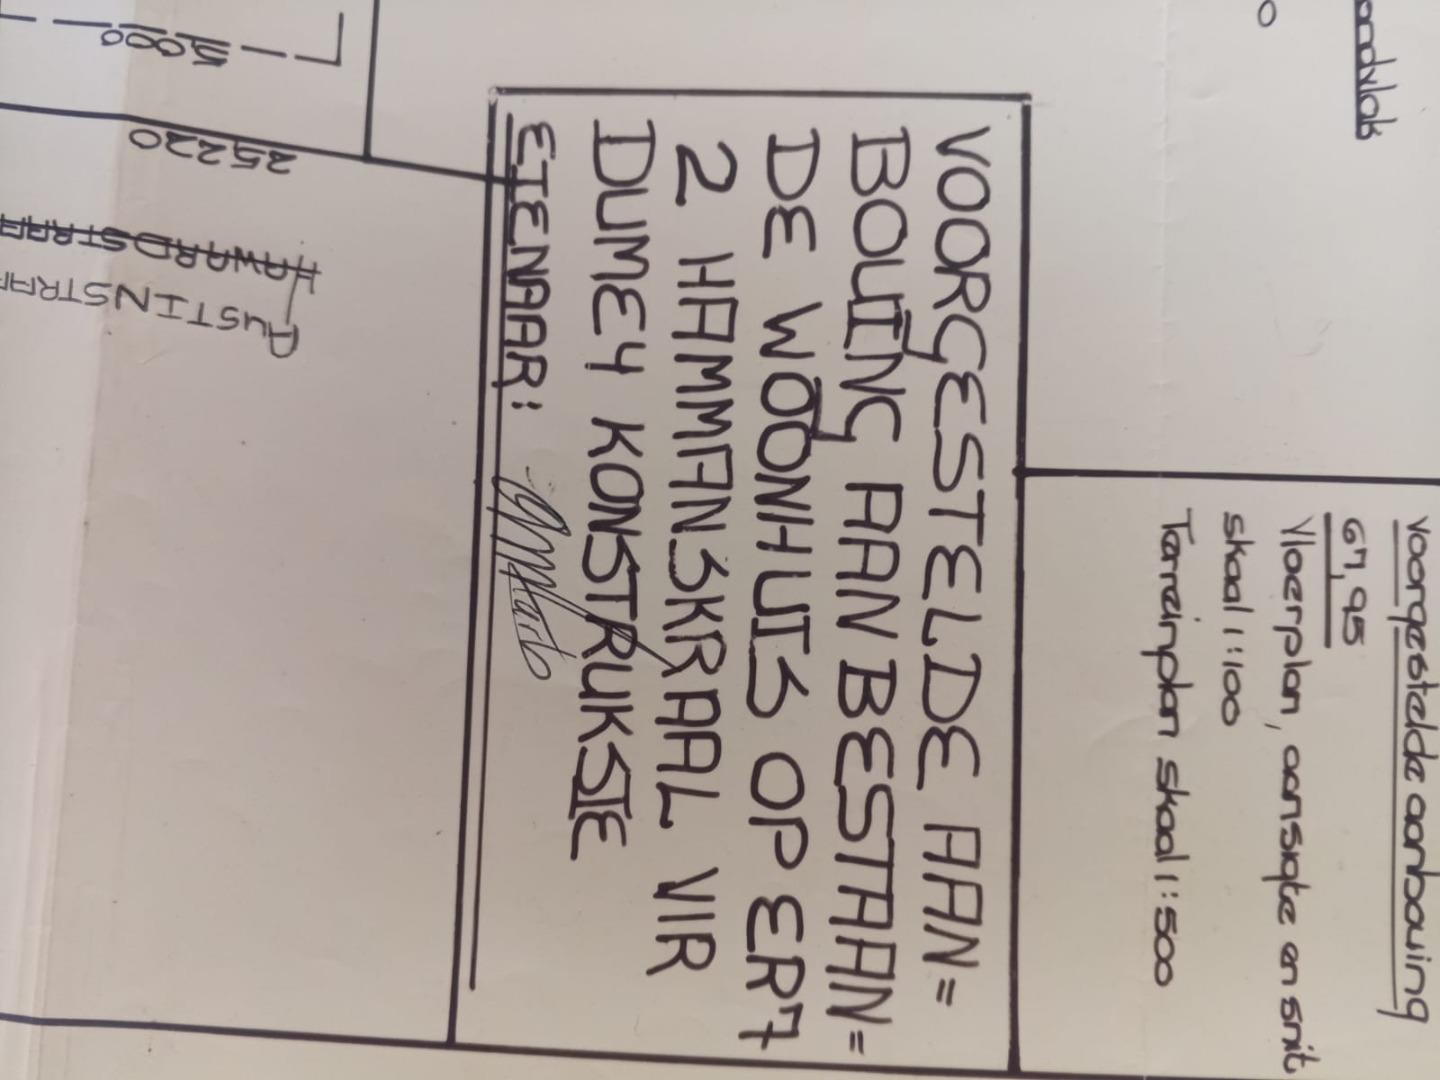 andvlak
0
Voorgestelde aanbouing
67,95
Vloerplan, aansigte en snit
skaal 1:100
Terreinplan skaal 1:500
VOORGESTELDE AAN=
BOUING AAN BESTAAN=
DE WOONHUIS OP ERF
2 HAMMANSKRAAL VIR
DUMEY KONSTRUKSIE
EIENAAR:
5000
25220
HAWARDSTRAA
AUSTINSTRAA